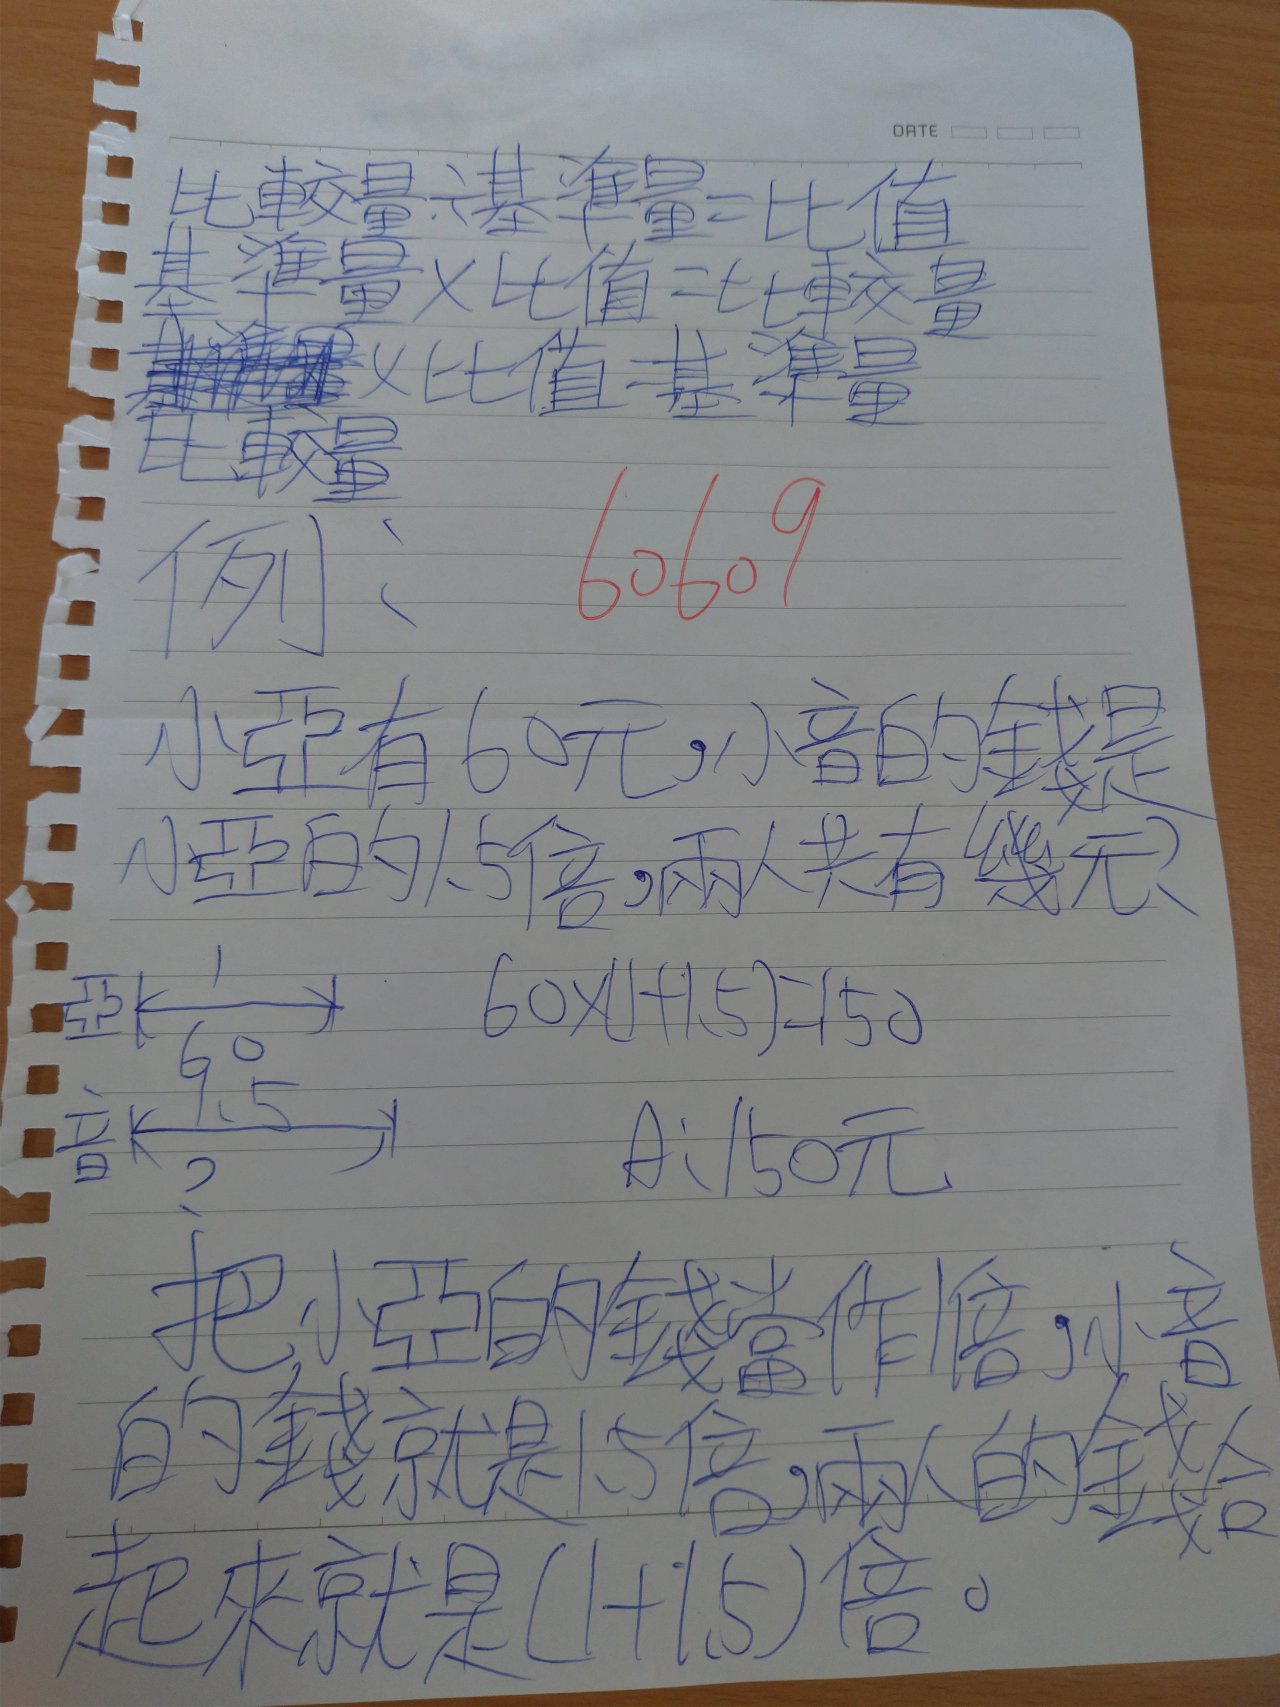 DATE
比較量÷基準量=比值
基準量×比值=比較量
×比值=基準量
比較量
例：
60609
小亞有60元，小音的錢是
小亞的1.5倍，兩人共有幾元？
亞 1
60×(1+1.5)=150
60
音 1.5
?
A:150元
把小亞的錢當作1倍，小音
的錢就是1.5倍，兩人的錢合
起來就是(1+1.5)倍。